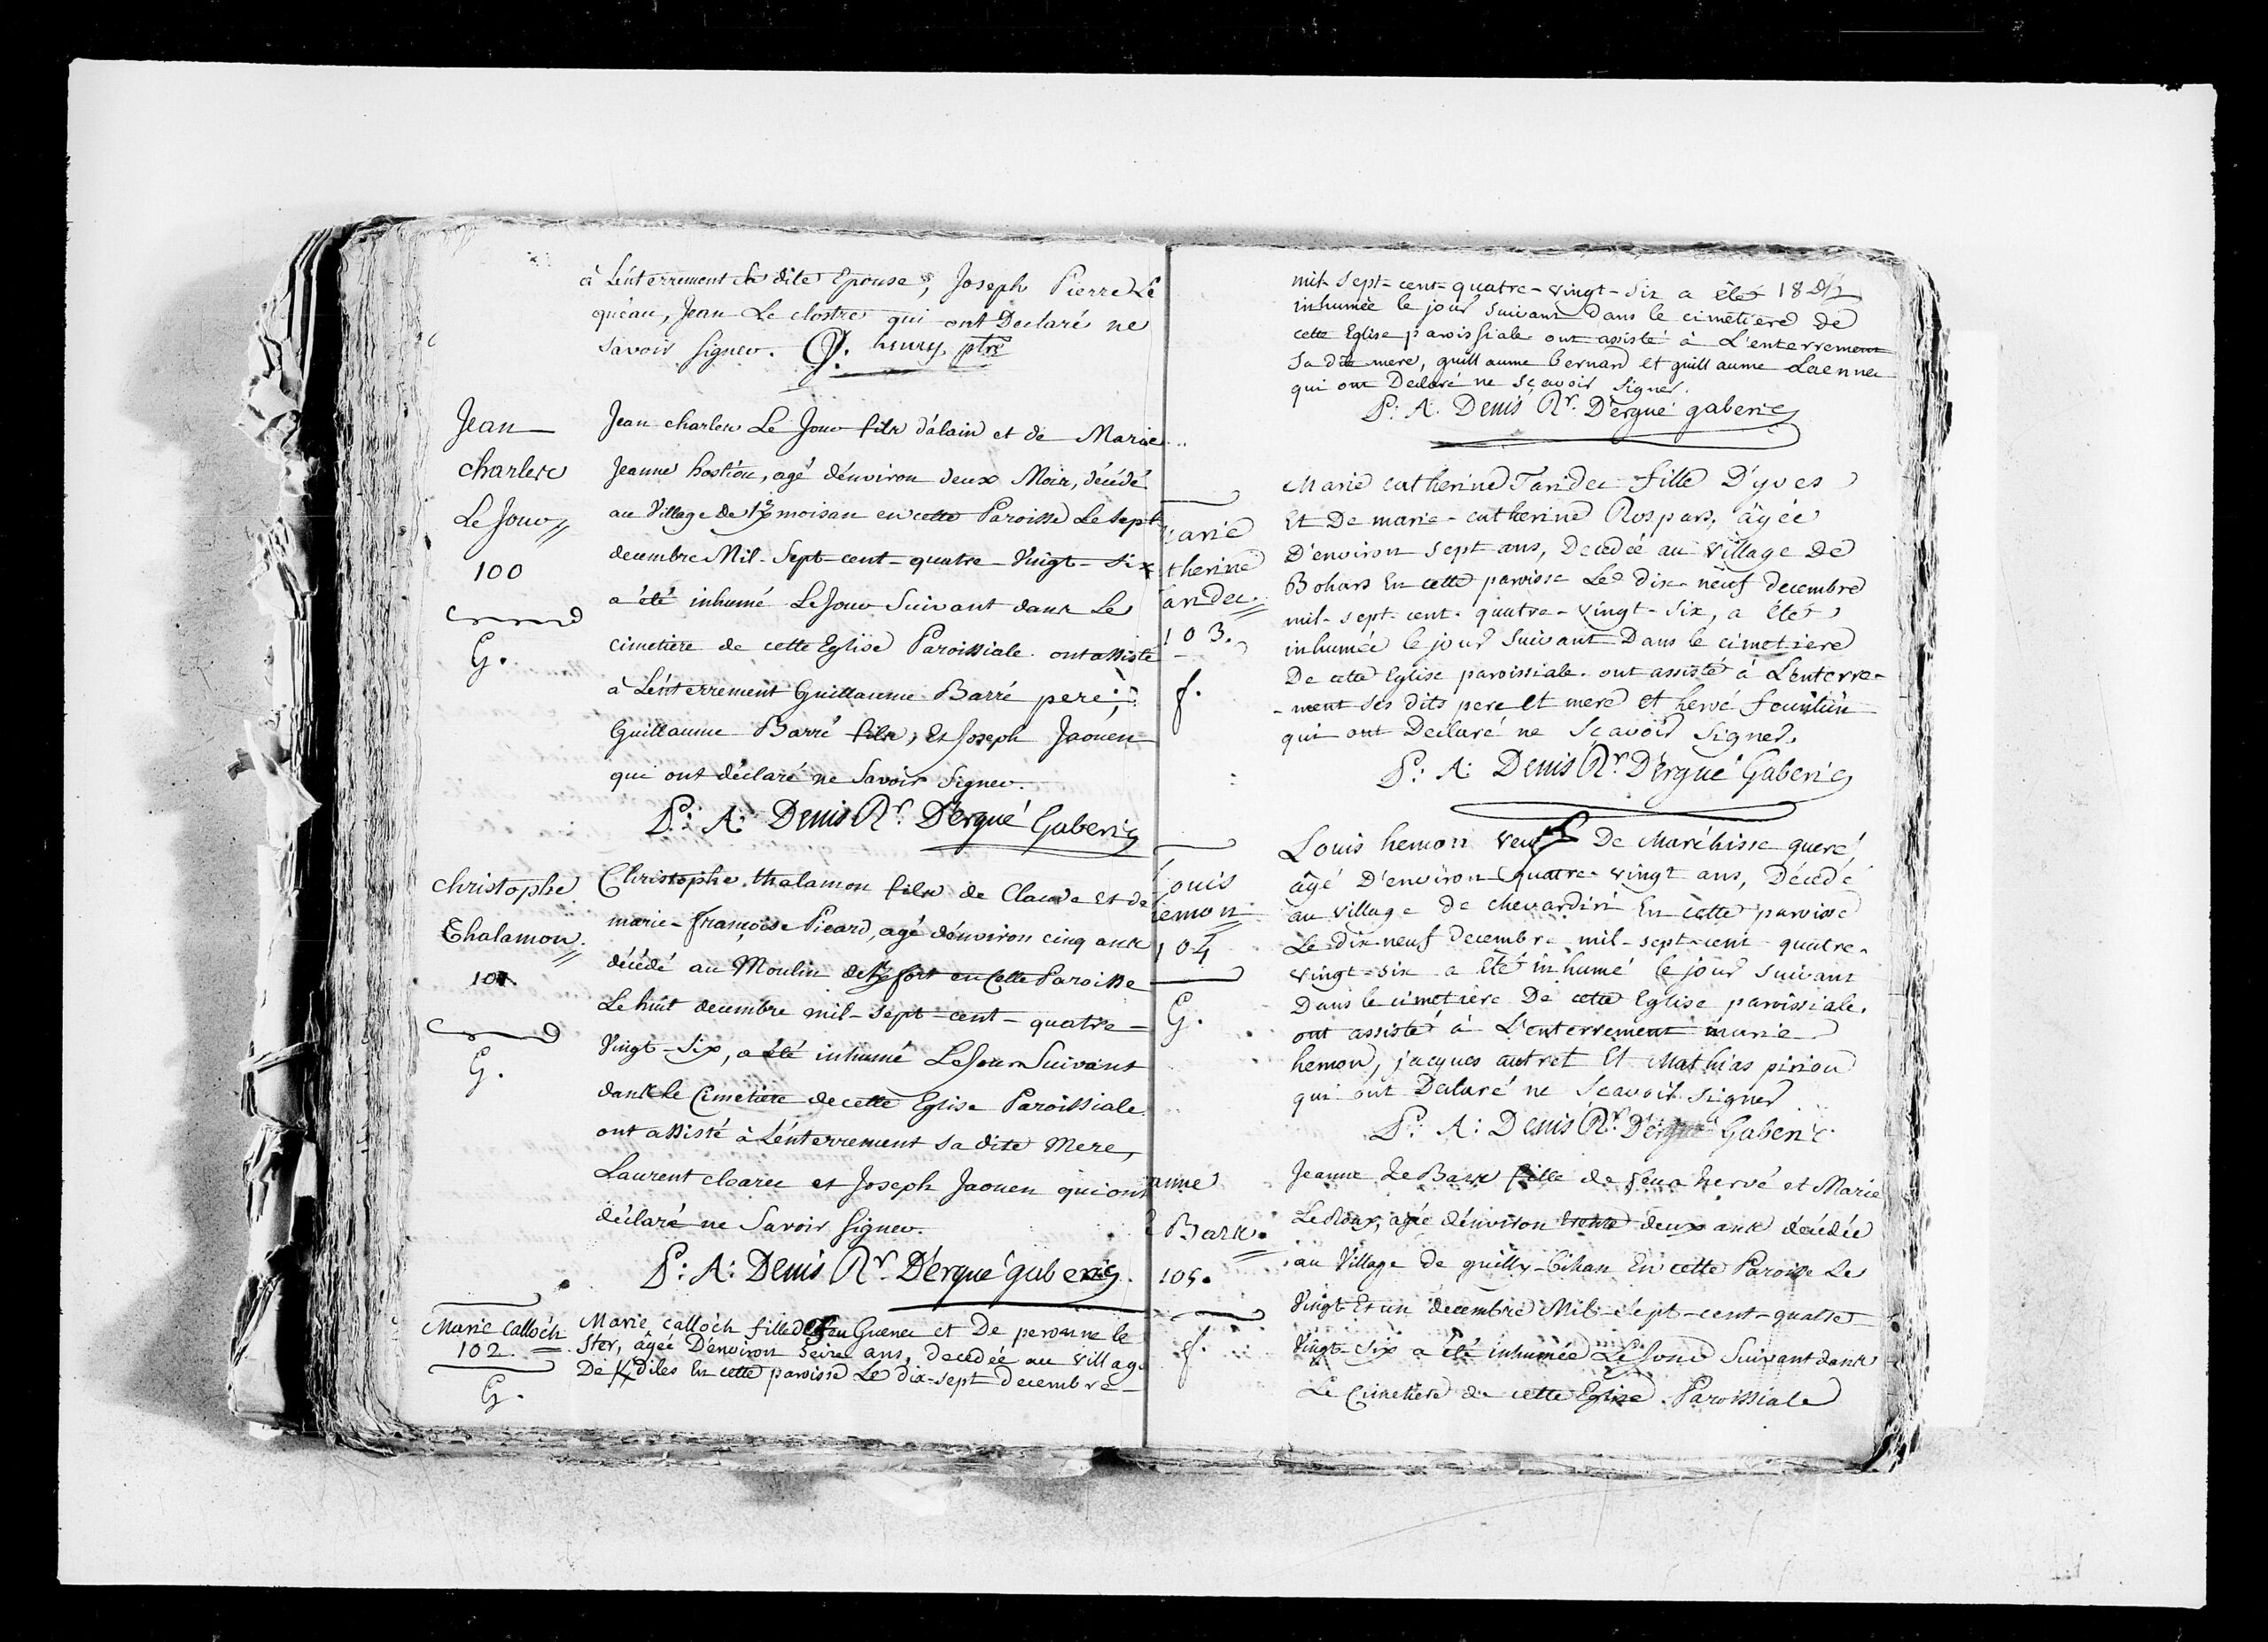 à L'énterrement sa dite Epouse, Joseph Pierre Le
quéau, Jean Le clostre qui ont Declaré ne
Savoir Signer. henry ptre
Jean
charles
Le Jour
100
G.
Jean charles Le Jour fils d'alain et de Marie
Jeanne hostiou, agé d'énviron deux Mois, décédé
au Village de K/moisan en cette Paroisse Le Sept
decembre Mil-Sept-cent-quatre-Vingt-Six
a été inhumé Le Jour Suivant dans Le
cimetiere de cette Eglise Paroissiale ont assisté
à L'énterrement Guillaume Barré pere,
Guillaume Barré fils, Et Joseph Jaouen
qui ont déclaré ne Savoir Signer.
P: A: Denis Rr. D'ergué Gaberic
christophe
Thalamon
101
G.
Christophe thalamon fils de Claude Et de
marie-françoise Picard, agé d'énviron cinq ans
décédé au Moulin de K/fort en cette Paroisse
Le huit decembre mil-Sept-cent-quatre-
Vingt-Six, a été inhumé Le Jour Suivant
dans le Cimetiere de cette Eglise Paroissiale
ont assisté à L'énterrement sa dite Mere,
Laurent clarec et Joseph Jaouen qui ont
déclaré ne Savoir Signer.
P: A: Denis Rr. D'ergué gaberic
Marie Calloc'h
102
G.
Marie calloc'h fille De feu Guenec et De peronne le
Ster, âgée D'environ Seize ans, decedée au Village
De K/diles En cette paroisse Le dix-sept decembre
mil-sept-cent-quatre-vingt-six a été
inhumée le jour Suivant Dans le cimetiere De
cette Eglise paroissiale ont assisté à L'enterrement
Sa dite mere, guillaume bernard et guillaume Laennec
qui ont Declaré ne Sçavoir Signer.
P: A. Denis Rr. D'ergué gaberic
arie
therine
aridec
103.
f.
Marie catherine Taridec fille D'yves
Et De marie-catherine Rospars, âgée
D'environ sept ans, Decedée au Village De
Bohars En cette paroisse Le dix-neuf decembre
mil-sept-cent-quatre-vingt-six, a été
inhumée le jour Suivant Dans le cimetiere
De cette Eglise paroissiale. ont assisté à L'enterre-
-ment Ses dits pere et mere et hervé
qui ont Declaré ne Sçavoir Signer
P: A: Denis Rr. D'ergué Gaberic
ouis
emon
104
G.
Louis hemon veuf De Maréhisse queré
âgé D'environ quatre-vingt ans, Décédé
au Village de chevardiri En cette paroisse
Le dix-neuf decembre mil-sept-cent quatre-
vingt-six a été inhumé le jour Suivant
Dans le cimetiere De cette Eglise paroissiale.
ont assisté à L'enterrement marie
hemon, jacques autret Et Mathias piriou
qui ont Declaré ne Sçavoir Signer
P: A: Denis Rr. D'ergué Gaberic
anne
Bars.
105.
f.
Jeanne Le Bars fille de feu hervé et Marie
Le Roux, agée d'énviron trente deux ans décédée
au Village de quilly-bihan En cette Paroisse Le
Vingt Et un decembre Mil-Sept-cent-quatre
Vingt-Six a été inhumée Le Jour Suivant dans
Le Cimetiere de cette Eglise Paroissiale